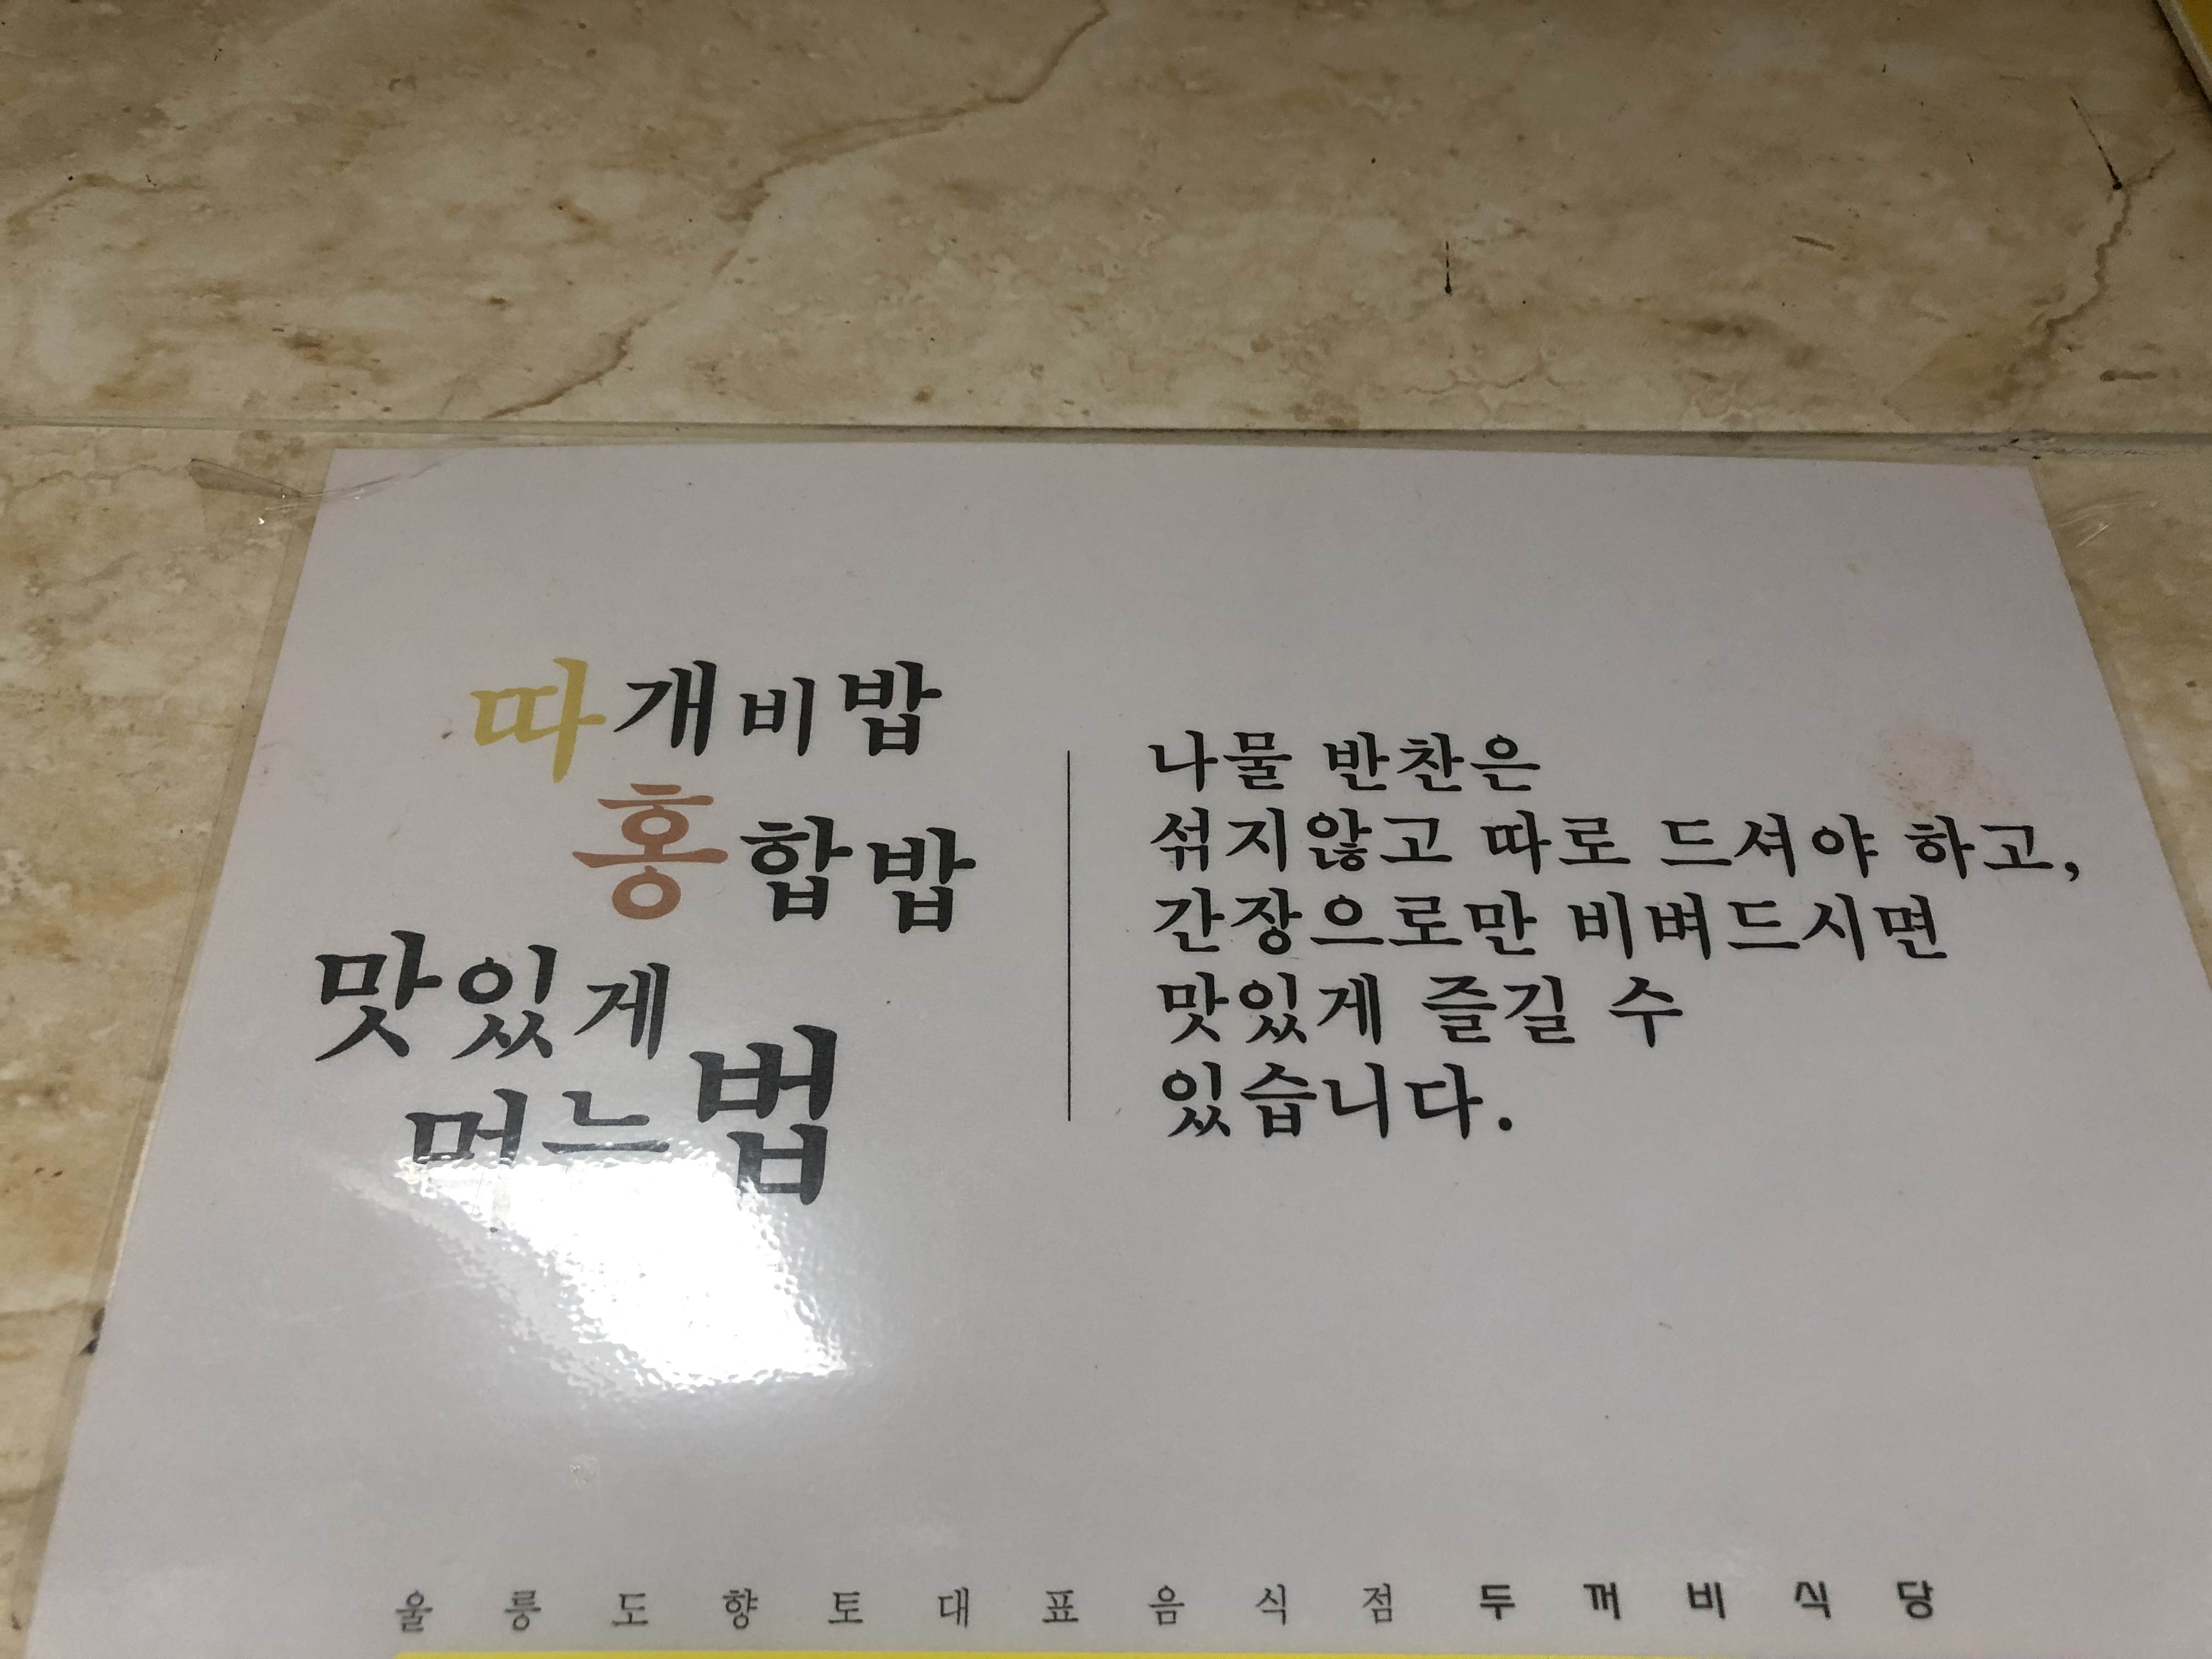 따개비밥
홍합밥
맛있게
먹는법
나물 반찬은
섞지않고 따로 드셔야 하고,
간장으로만 비벼드시면
맛있게 즐길 수
있습니다.
울릉도향토대표음식점두꺼비식당